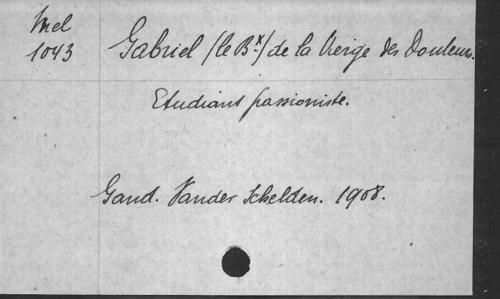 Mel
1043
Gabriel (le Bx) de la Vierge des Douleurs.
Etudiant passioniste.
Gand. Vander Schelden. 1908.